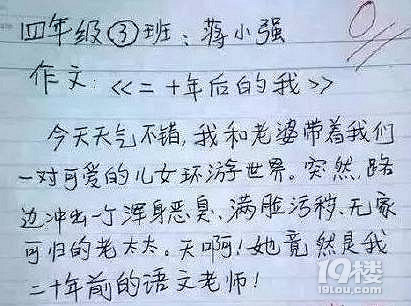 四年级③班:蒋小强
0
作文:《二十年后的我》
今天天气不错,我和老婆带着我们
一对可爱的儿女环游世界。突然,路
边冲出一个浑身恶臭、满脸污秽、无家
可归的老太太。天啊!她竟然是我
二十年前的语文老师!
19楼
19lou.com